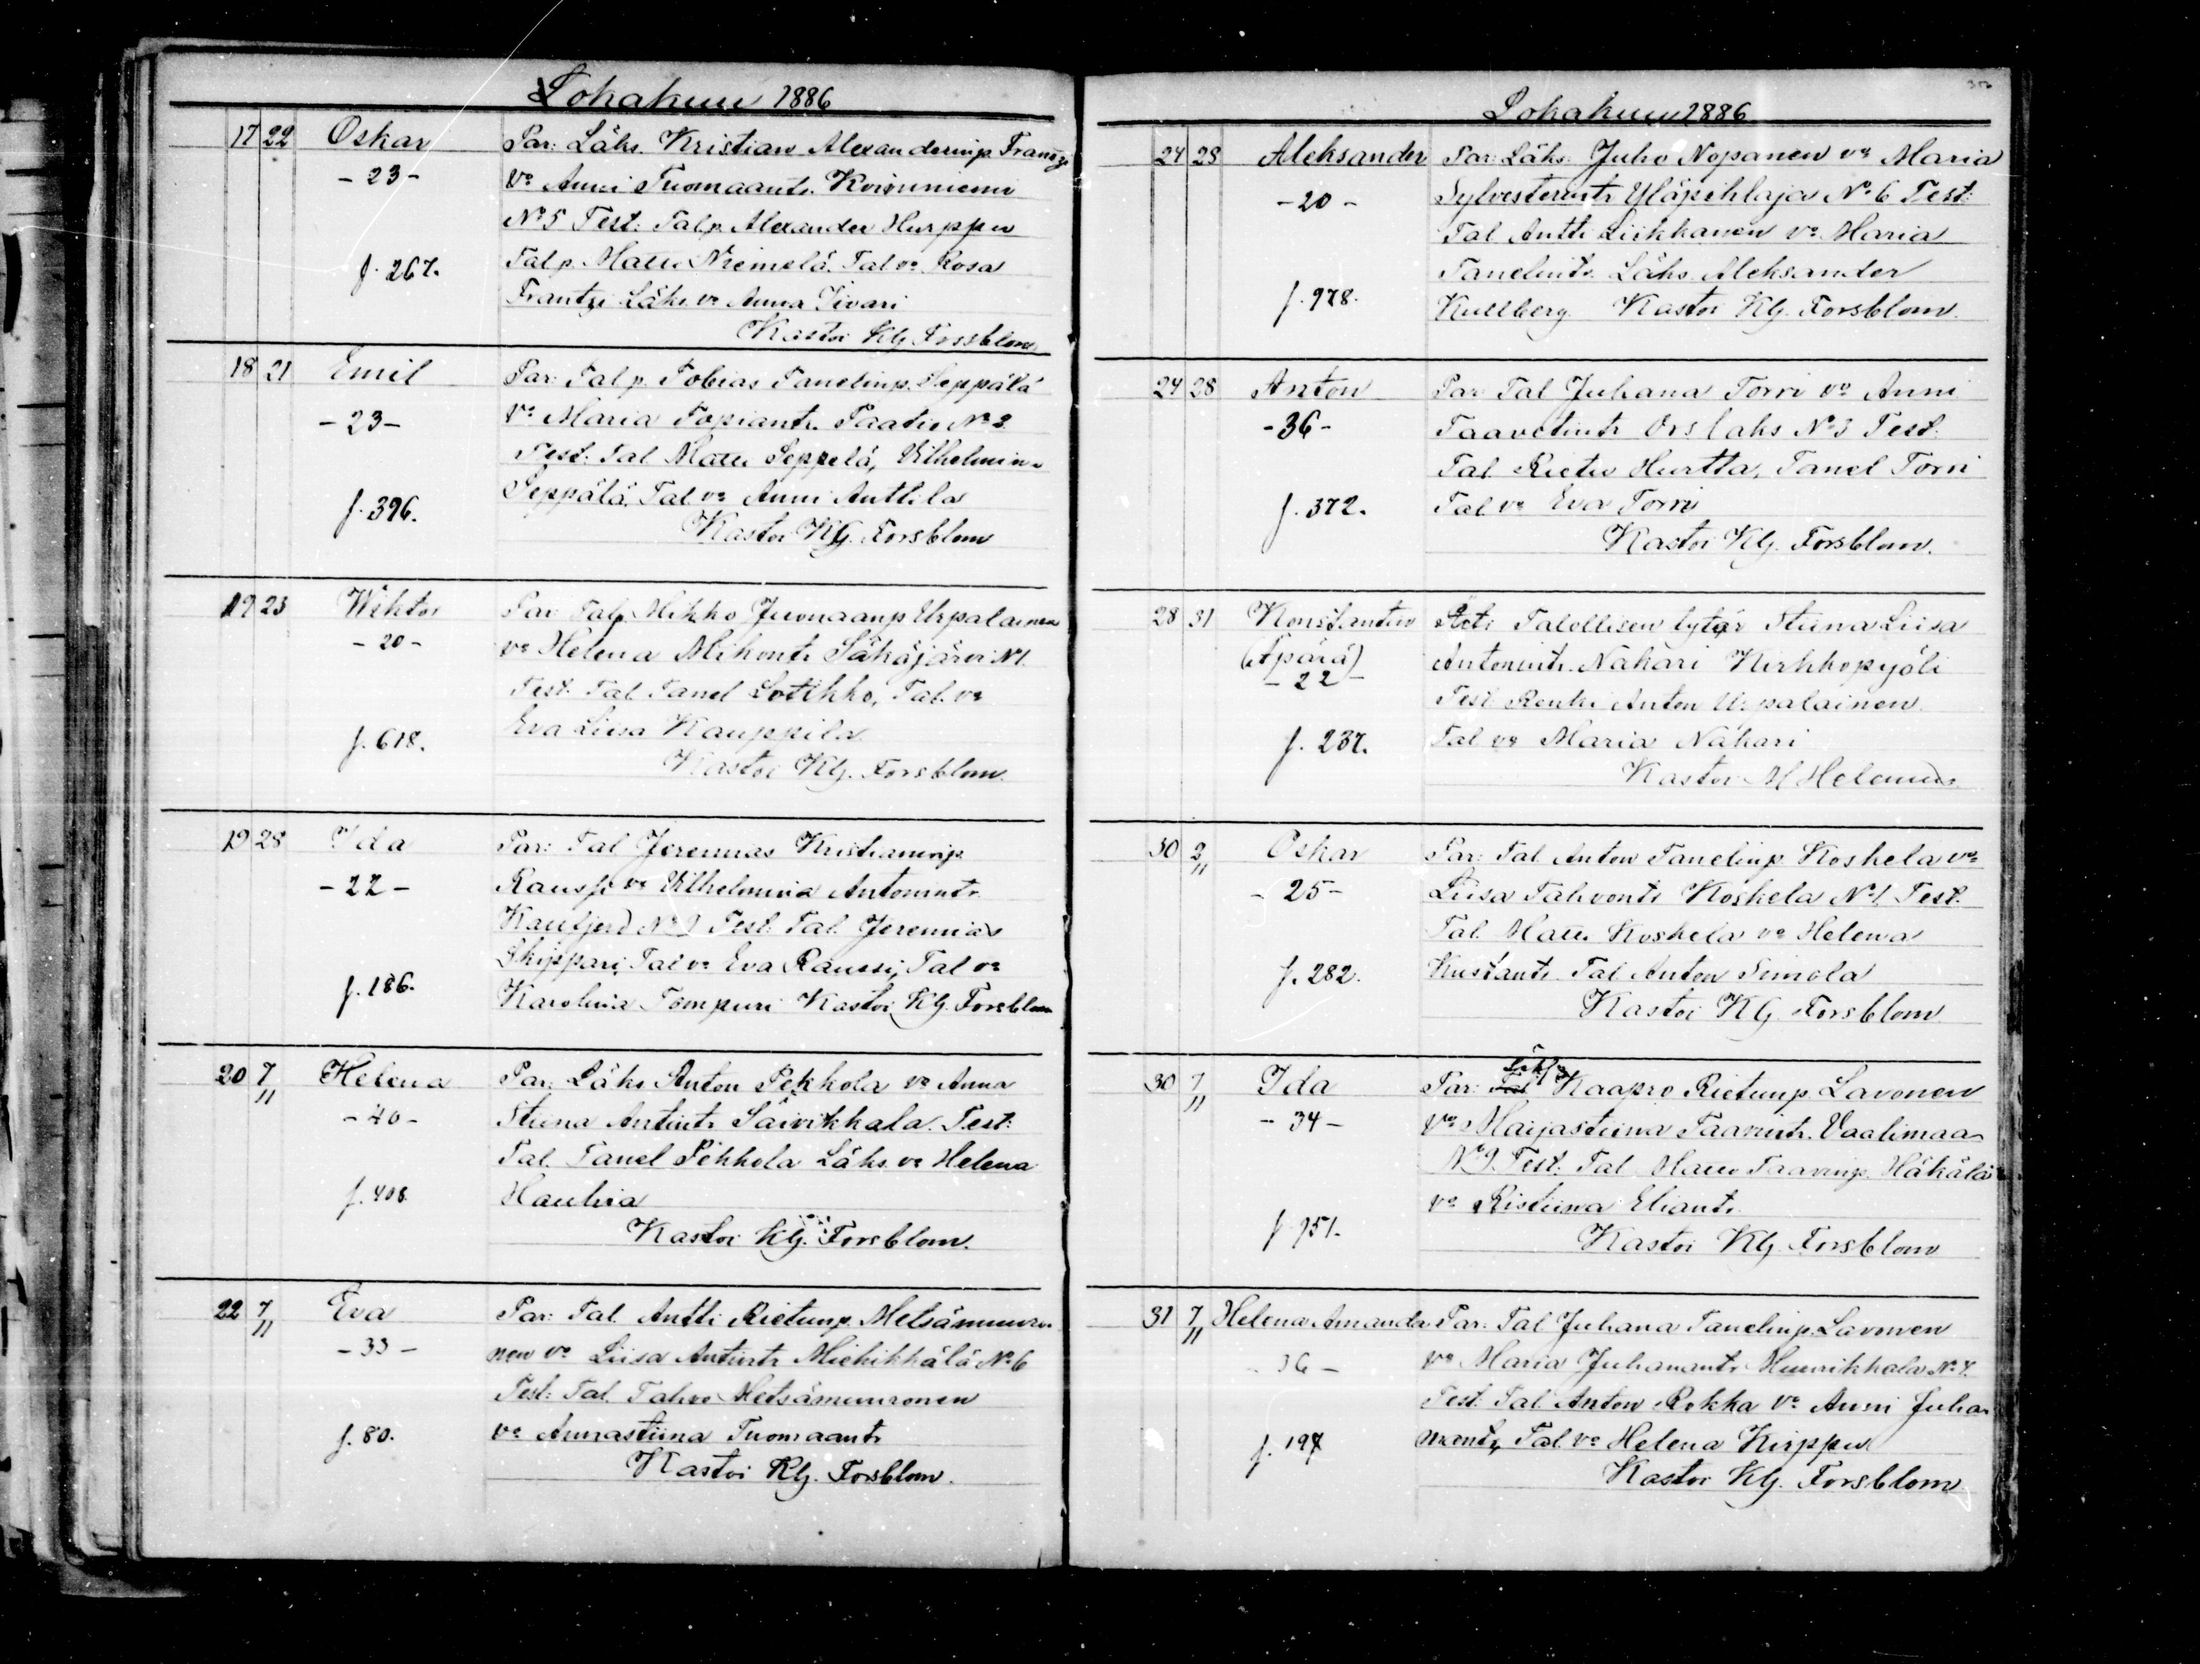 Lokakuu 1886
17 22 Oskar Par: Läks. Kristian Alexanderinp. Frantzi
- 23 - vo Anni Tuomaantr. Koivuniemi
No 5 Test: Talp. Alexander Hurppu
f. 267. Talp. Matti Niemelä. Tal vo Rosa
Frantzi Läks. vo Anna Sivari
Kastoi Klj Forsblom
18 21 Emil Par: Tal p. Tobias Tanelinp. Seppälä
- 23 - vo Maria Topiantr. Paatio No 2.
Test: Tal Matti Seppelä, Vilhelmin
f. 396. Seppälä. Tal vo Anni Anttila
Kastoi Klj. Forsblom
19 23 Wiktor Par: Talp. Mikko Juonaanp Urpalainen
- 20 - vo Helena Mikontr. Säkäjärvi N1.
Test: Tal Tanel Sotikko, Tal. vo
f. 618. Eva Liisa Kauppila
Kastoi Klj. Forsblom.
19 28 Ida Par: Tal Jeremias Kristianinp.
- 22 - Raussi vo Vilhelmina Antonintr.
No 9 Test: Tal. Jeremias
Skippari, Tal vo Eva Raussi, Tal vo
f. 186. Karolina Tompuri Kastoi Klj. Forsblom
20 7/11 Helena Par: Läks Anton Pekkola vo Anna
- 40 - Stiina Antintr. Säivikkala. Test:
Tal. Tanel Pekkola Läks. vo Helena
f. 408. Haukia
Kastoi Klj. Forsblom.
22 7/11 Eva Par: Tal Antti Rietunp. Metsämuuro
- 33 - nen vo Liisa Antintr. Miehikkälä No 6
Test: Tal. Tahvo Metsämuuronen
f. 80. vo Annastiina Tuomaantr
Kastoi Klj. Forsblom.
Lokakuu 1886
24 28 Aleksander Par: Läks: Juho Nopanen vo Maria
- 20 - Sylvesterintr Yläpihlaja No 6 Test:
Tal Antti Liikkanen vo Maria
Tanelintr. Läks. Aleksander
f. 978. Kullberg Kastoi Klj. Forsblom.
24 28 Anton Par: Tal Juhana Torri vo Anni
- 36 - Taavetintr Orslahs No 3 Test:
Tal. Rietu Hurtta, Tanel Torri
f. 372. Tal vo Eva Torri
Kastoi Klj. Forsblom.
28 31 Konstantin Äiti Talollisen tytär Stiina Liisa
(Äpärä) Antonintr. Näkäri Kirkkopyöli
- 22 - Test Renki Anton Urpalainen
f. 237. Tal vo Maria Näkäri
Kastoi M Helenius
30 2/11 Oskar Par: Tal Anton Tanelinp. Koskela vo
- 25 - Liisa Tahvontr Koskela No 1. Test.
Tal. Matti Koskela vo Helena
f. 282. Kustantr. Tal Anton Simola
Kastoi Klj Forsblom
30 7/11 Ida Par: Läks. Kaapro Rietunp. Lavonen
- 34 - vo Maijastiina Taavintr. Vaalimaa
No 9. Test: Tal Matti Taavinp. Häkälä
vo Ristiina Eliantr.
f 951. Kastoi Klj. Forsblom
31 7/11 Helena Amanda Par: Tal Juhana Tanelinp. Lavonen
36 - vo Maria Juhanantr. Muurikkala No 4.
Test. Tal Anton Rokka vo Anni Juha
f. 197 nantr, Tal vo Helena Kirppu
Kastoi Klj. Forsblom